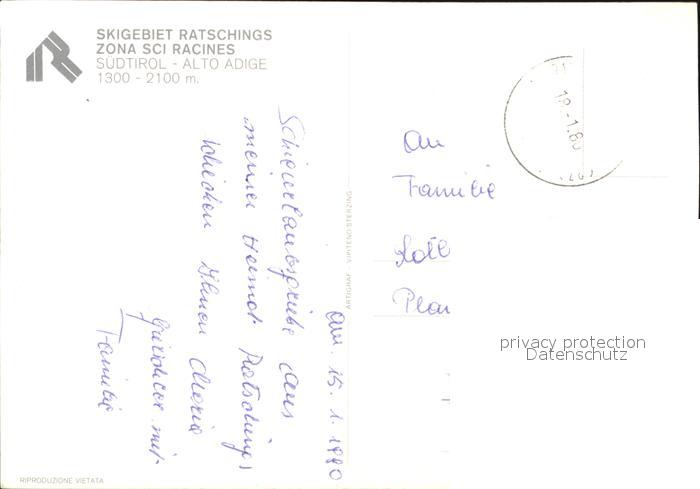 SKIGEBIET RATSCHINGS
ZONA SCI RACINES
SÜDTIROL - ALTO ADIGE
1300 - 2100 m.
am. 15. 1. 1980
Schieurlaubsgrüße aus
meiner Heimat Ratschings
schicken Ihnen Maria
Güridncer mit
Familie
ARTIGRAF - VIPITENO/STERZING
18-1.80
An
Familie
privacy protection
Datenschutz
RIPRODUZIONE VIETATA